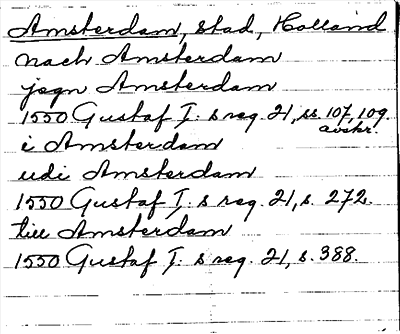 Amsterdam, stad, Holland
nach Amsterdam
jegn Amsterdam
1550 Gustaf I. s reg. 21, ss. 107, 109.
avskr.
i Amsterdam
udi Amsterdam
1550 Gustaf I. s reg. 21, s. 272.
till Amsterdam
1550 Gustaf I. s reg. 21, s. 388.